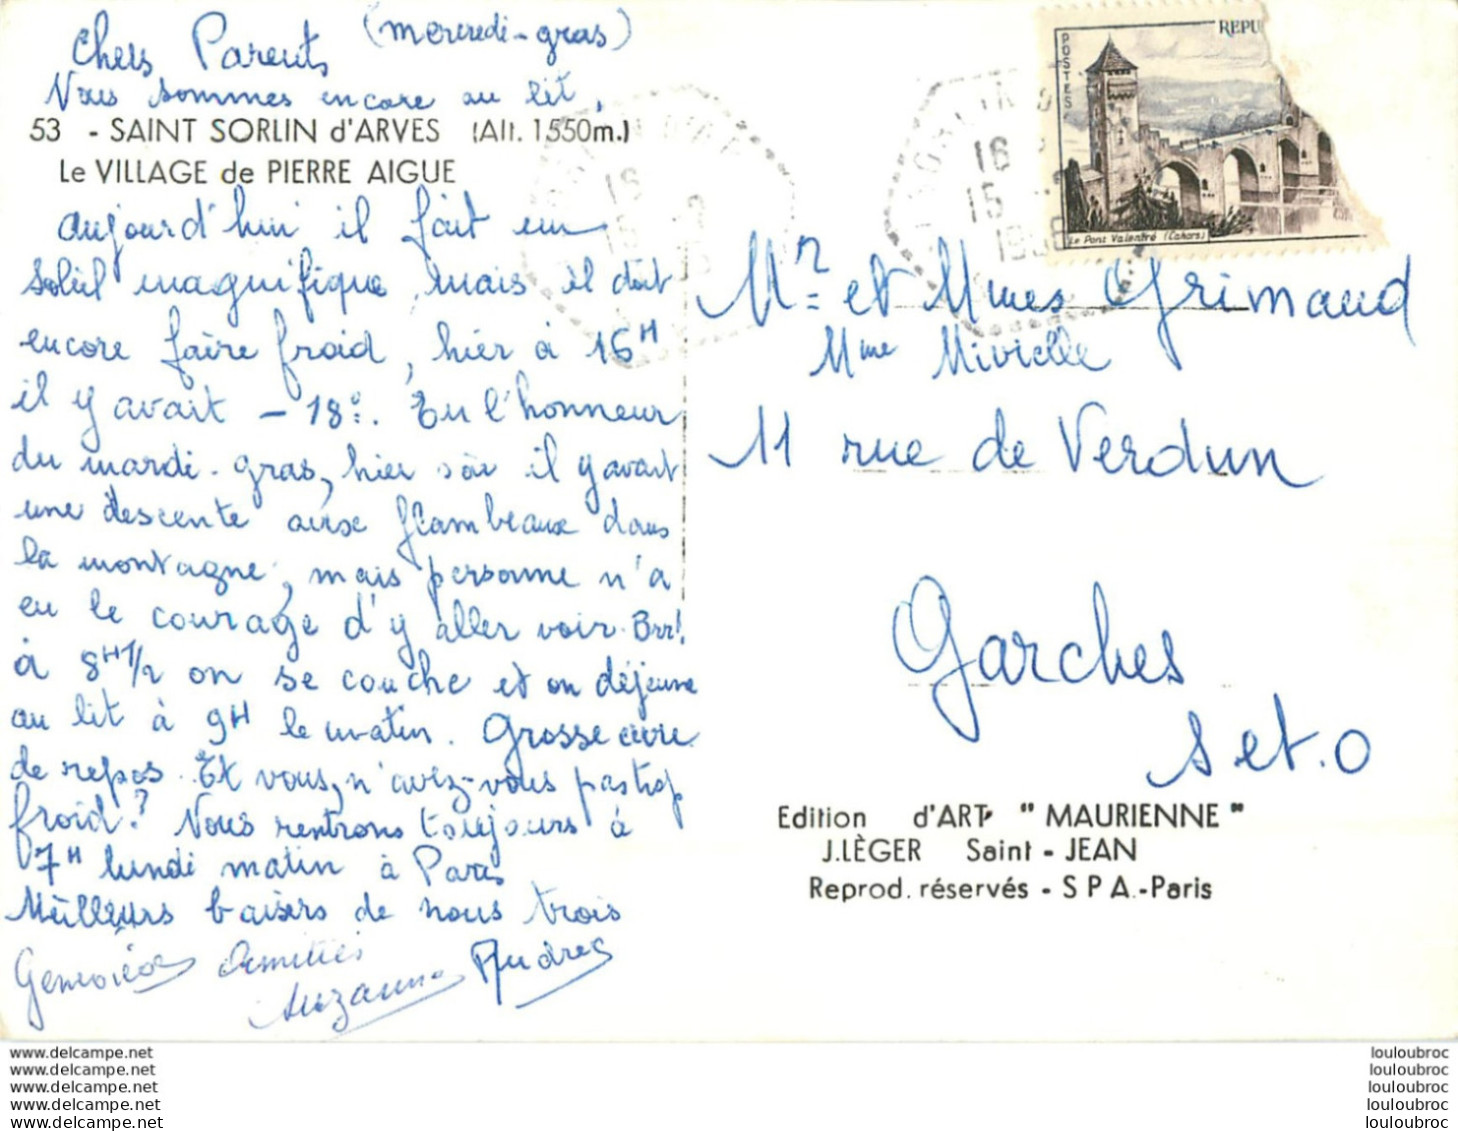 Chers Parents (mercredi-gras)
Nous sommes encore au lit,
53 - SAINT SORLIN d'ARVES (Alt. 1550m.)
Le VILLAGE de PIERRE AIGUE
aujourd'hui il fait un
soleil magnifique, mais il doit
encore faire froid, hier à 16H
il y avait - 18°. En l'honneur
du mardi-gras, hier soir il y avait
une descente aux flambeaux dans
la montagne, mais personne n'a
eu le courage d'y aller voir. Brr!
à 8H1/2 on se couche et on déjeune
au lit à 9H le matin. Grosse cure
de repos. Et vous, n'avez-vous pas trop
froid? Nous rentrons toujours à
7H lundi matin à Paris
Meilleurs baisers de nous trois
Geneviève Amitiés Andrée
Suzanne
REPU
POSTES
Le Pont Valentré (Cahors)
16
15
Mr et Mmes Grimaud
Mme Mivielle
11 rue de Verdun
Garches
S et. O
Edition d'ART "MAURIENNE"
J.LÈGER Saint-JEAN
Reprod. réservés - S P A.-Paris
www.delcampe.net
www.delcampe.net
www.delcampe.net
www.delcampe.net
www.delcampe.net
louloubroc
louloubroc
louloubroc
louloubroc
louloubroc